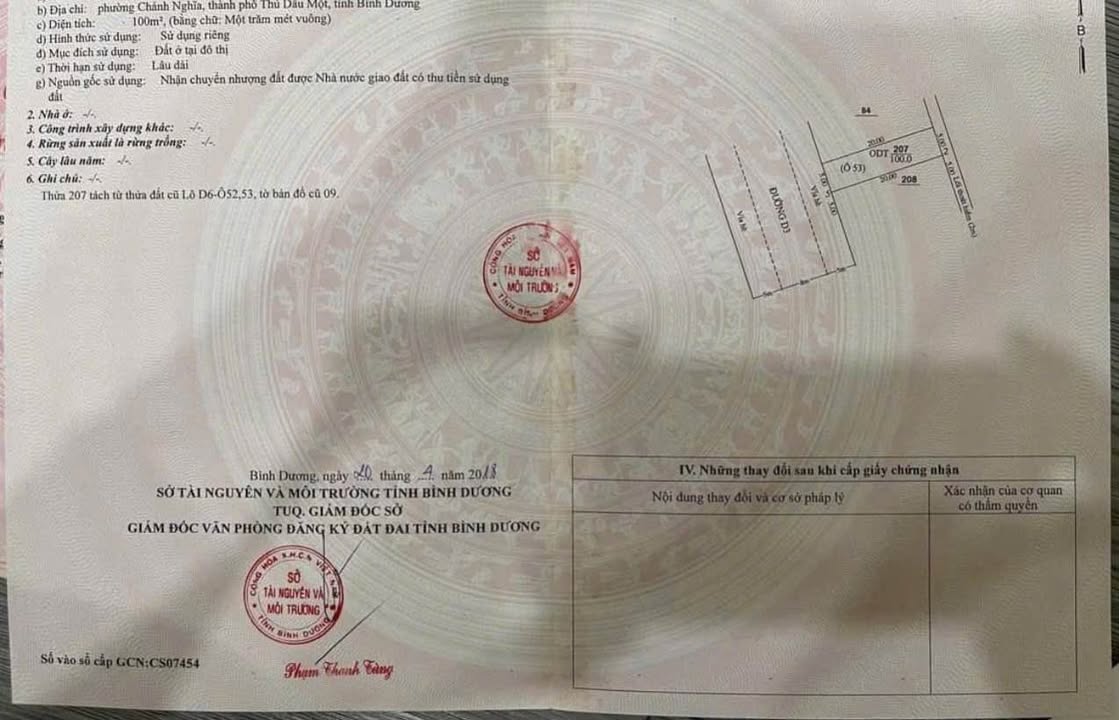 b) Địa chỉ: phường Chánh Nghĩa, thành phố Thủ Dầu Một, tỉnh Bình Dương
c) Diện tích: 100m², (bằng chữ: Một trăm mét vuông)
d) Hình thức sử dụng: Sử dụng riêng
đ) Mục đích sử dụng: Đất ở tại đô thị
e) Thời hạn sử dụng: Lâu dài
g) Nguồn gốc sử dụng: Nhận chuyển nhượng đất được Nhà nước giao đất có thu tiền sử dụng
đất
2. Nhà ở: -/-.
3. Công trình xây dựng khác: -/-.
4. Rừng sản xuất là rừng trồng: -/-.
5. Cây lâu năm: -/-.
6. Ghi chú: -/-.
Thửa 207 tách từ thửa đất cũ Lô D6-Ô52,53, tờ bản đồ cũ 09.
B
84
20.00
ODT 207
100.0
(Ô 53)
20.00 208
5.00
5.00
5.00
Lối thoát hiểm (2m)
Vỉa hè
ĐƯỜNG D3
Vỉa hè
5m
8m
5m
CỘNG HÒA
SỞ
TÀI NGUYÊN VÀ
MÔI TRƯỜNG
TỈNH BÌNH DƯƠNG
Bình Dương, ngày 20 tháng 4 năm 2018
SỞ TÀI NGUYÊN VÀ MÔI TRƯỜNG TỈNH BÌNH DƯƠNG
TUQ. GIÁM ĐỐC SỞ
GIÁM ĐỐC VĂN PHÒNG ĐĂNG KÝ ĐẤT ĐAI TỈNH BÌNH DƯƠNG
CỘNG HÒA X.H.C.N VIỆT NAM
SỞ
TÀI NGUYÊN VÀ
MÔI TRƯỜNG
TỈNH BÌNH DƯƠNG
Phạm Thanh Tùng
Số vào sổ cấp GCN:CS07454
IV. Những thay đổi sau khi cấp giấy chứng nhận
Nội dung thay đổi và cơ sở pháp lý
Xác nhận của cơ quan
có thẩm quyền